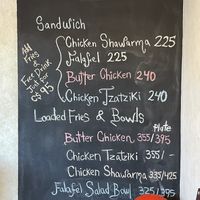 Sandwich
Chicken Shawarma 225
Falafel 225
Butter Chicken 240
Chicken Tzatziki 240
Add
Fries
&
Fntn Drink
Just for
C$ 95
Loaded Fries & Bowls
Plate
Butter Chicken 355/395
Chicken Tzatziki 355/-
Chicken Shawarma 335/425
Falafel Salad Bowl 325/395